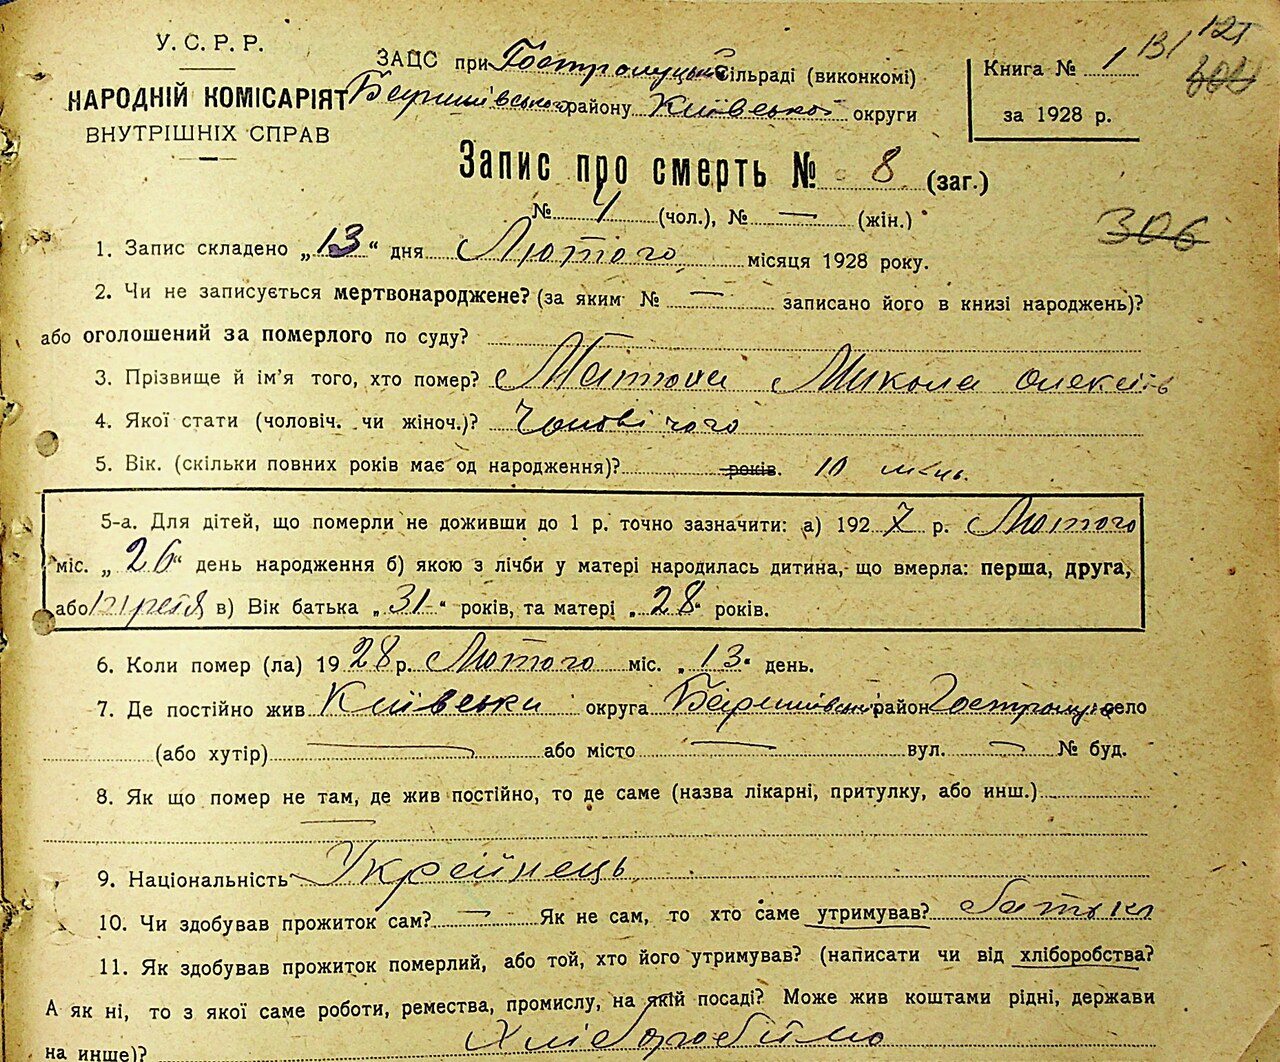 У. С. Р. Р.
НАРОДНІЙ КОМІСАРІЯТ
ВНУТРІШНІХ СПРАВ
ЗАЦС при Гостролуцькій сільраді (виконкомі)
Баришівського району Київської округи
Книга № 1
за 1928 р.
131 121
300
Запис про смерть № 8 (заг.)
№ 4 (чол.), № — (жін.)
306
1. Запис складено „13“ дня Лютого місяця 1928 року.
2. Чи не записується мертвонароджене? (за яким № — записано його в книзі народжень)?
або оголошений за померлого по суду?
3. Прізвище й ім’я того, хто помер? Микола Олексіїв
4. Якої стати (чоловіч. чи жіноч.)? Чоловічого
5. Вік. (скільки повних років має од народження)? років. 10 місяць.
5-а. Для дітей, що померли не доживши до 1 р. точно зазначити: а) 1927 р. Лютого
міс. „26“ день народження б) якою з лічби у матері народилась дитина, що вмерла: перша, друга,
або третя в) Вік батька „31“ років, та матері „28“ років.
6. Коли помер (ла) 1928 р. Лютого міс. „13“ день.
7. Де постійно жив Київська округа Баришівський район Гостролуччя село
(або хутір) — або місто — вул. — № буд.
8. Як що помер не там, де жив постійно, то де саме (назва лікарні, притулку, або инш.)
—
9. Національність Украйнець
10. Чи здобував прожиток сам? — Як не сам, то хто саме утримував? батько
11. Як здобував прожиток померлий, або той, хто його утримував? (написати чи від хліборобства?
А як ні, то з якої саме роботи, ремества, промислу, на якій посаді? Може жив коштами рідні, держави
на инше)? Хліборобство